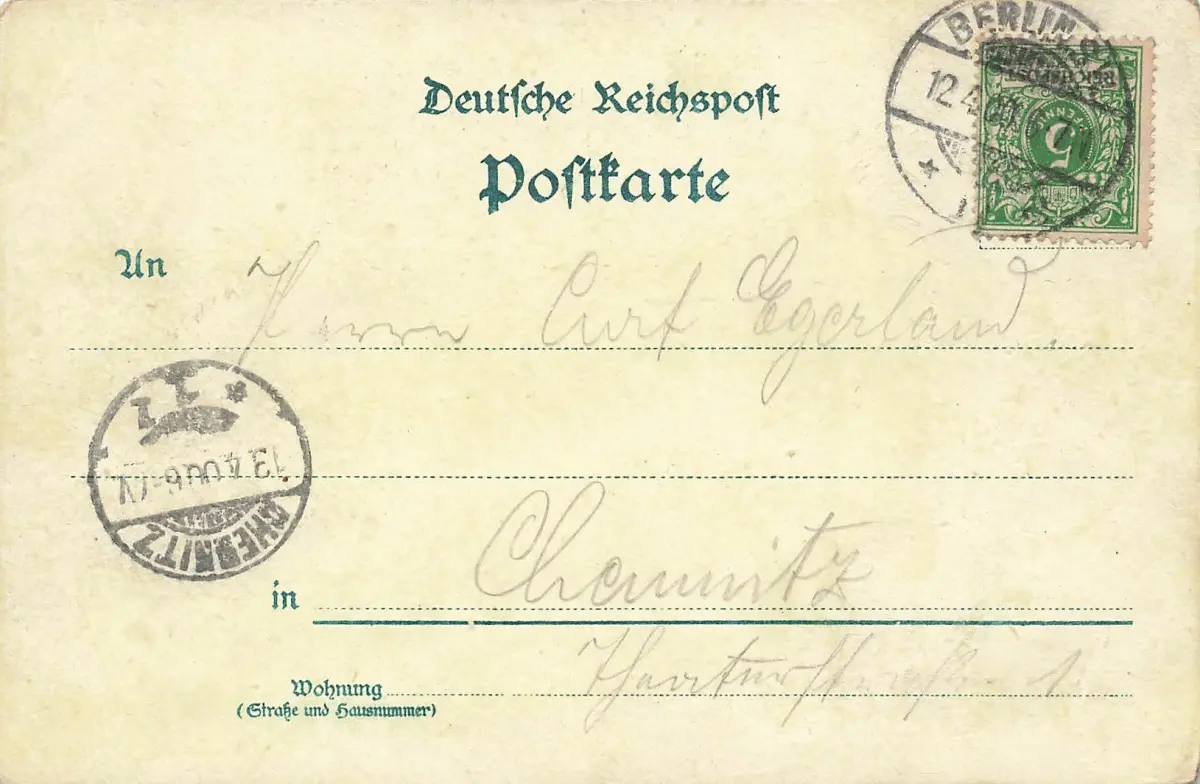 Deutsche Reichspost
Postkarte
BERLIN C
12.4.00
REICHSPOST
5
PFENNIG
An Herrn Curt Egerland
13.4.00. 6-7V
CHEMNITZ
in Chemnitz
Wohnung Theaterstraße 1
(Straße und Hausnummer)